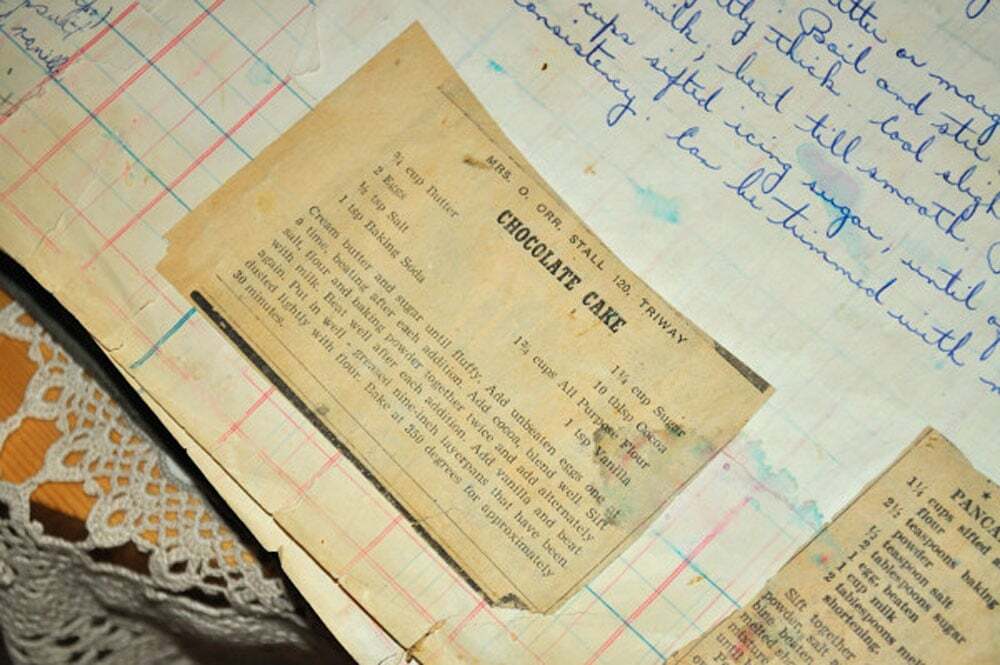 vanilla
or may
Boil and stir
thick. Cool
milk, beat till smooth.
cups sifted icing sugar, until
consistency. Can be trimmed with
MRS. O. ORR, STALL 120, TRIWAY
CHOCOLATE CAKE
¾ cup Butter
2 Eggs
½ tsp Salt
1 tsp Baking Soda
1¼ cup Sugar
10 tblsp Cocoa
1¾ cups All Purpose Flour
1 tsp Vanilla
Cream butter and sugar until fluffy. Add unbeaten eggs one
a time, beating after each addition. Add cocoa, blend well. Sift
salt, flour and baking powder together twice and add alternately
with milk. Beat well after each addition. Add vanilla and beat
again. Put in well - greased nine-inch layerpans that have been
dusted lightly with flour. Bake at 350 degrees for approximately
30 minutes.
1¼ cups sifted
flour
2½ teaspoons baking
powder
½ teaspoon salt
2 tablespoons sugar
1 egg, beaten
1 cup milk
2 tablespoons
shortening.
Sift together
powder, salt